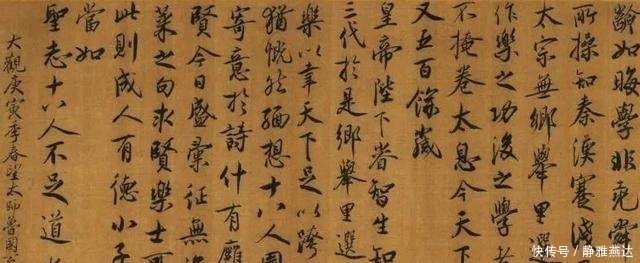 齡如晦學非堯舜
所操知秦漢蹇淺
太宗無鄉舉里選
作樂之功後之學者
不掩卷太息今天下
又五百餘歲
皇帝陛下睿智生知
三代於是鄉舉里選
樂以幸天下足以跨
猶慨然緬想十八人圖
寄意於詩什有廊
賢今日盛彙征無
菜之句求賢樂士可
此則成人有德小子
當如
聖志十八人不足道也
大觀庚寅季春望太師魯國
快传号/静雅燕达